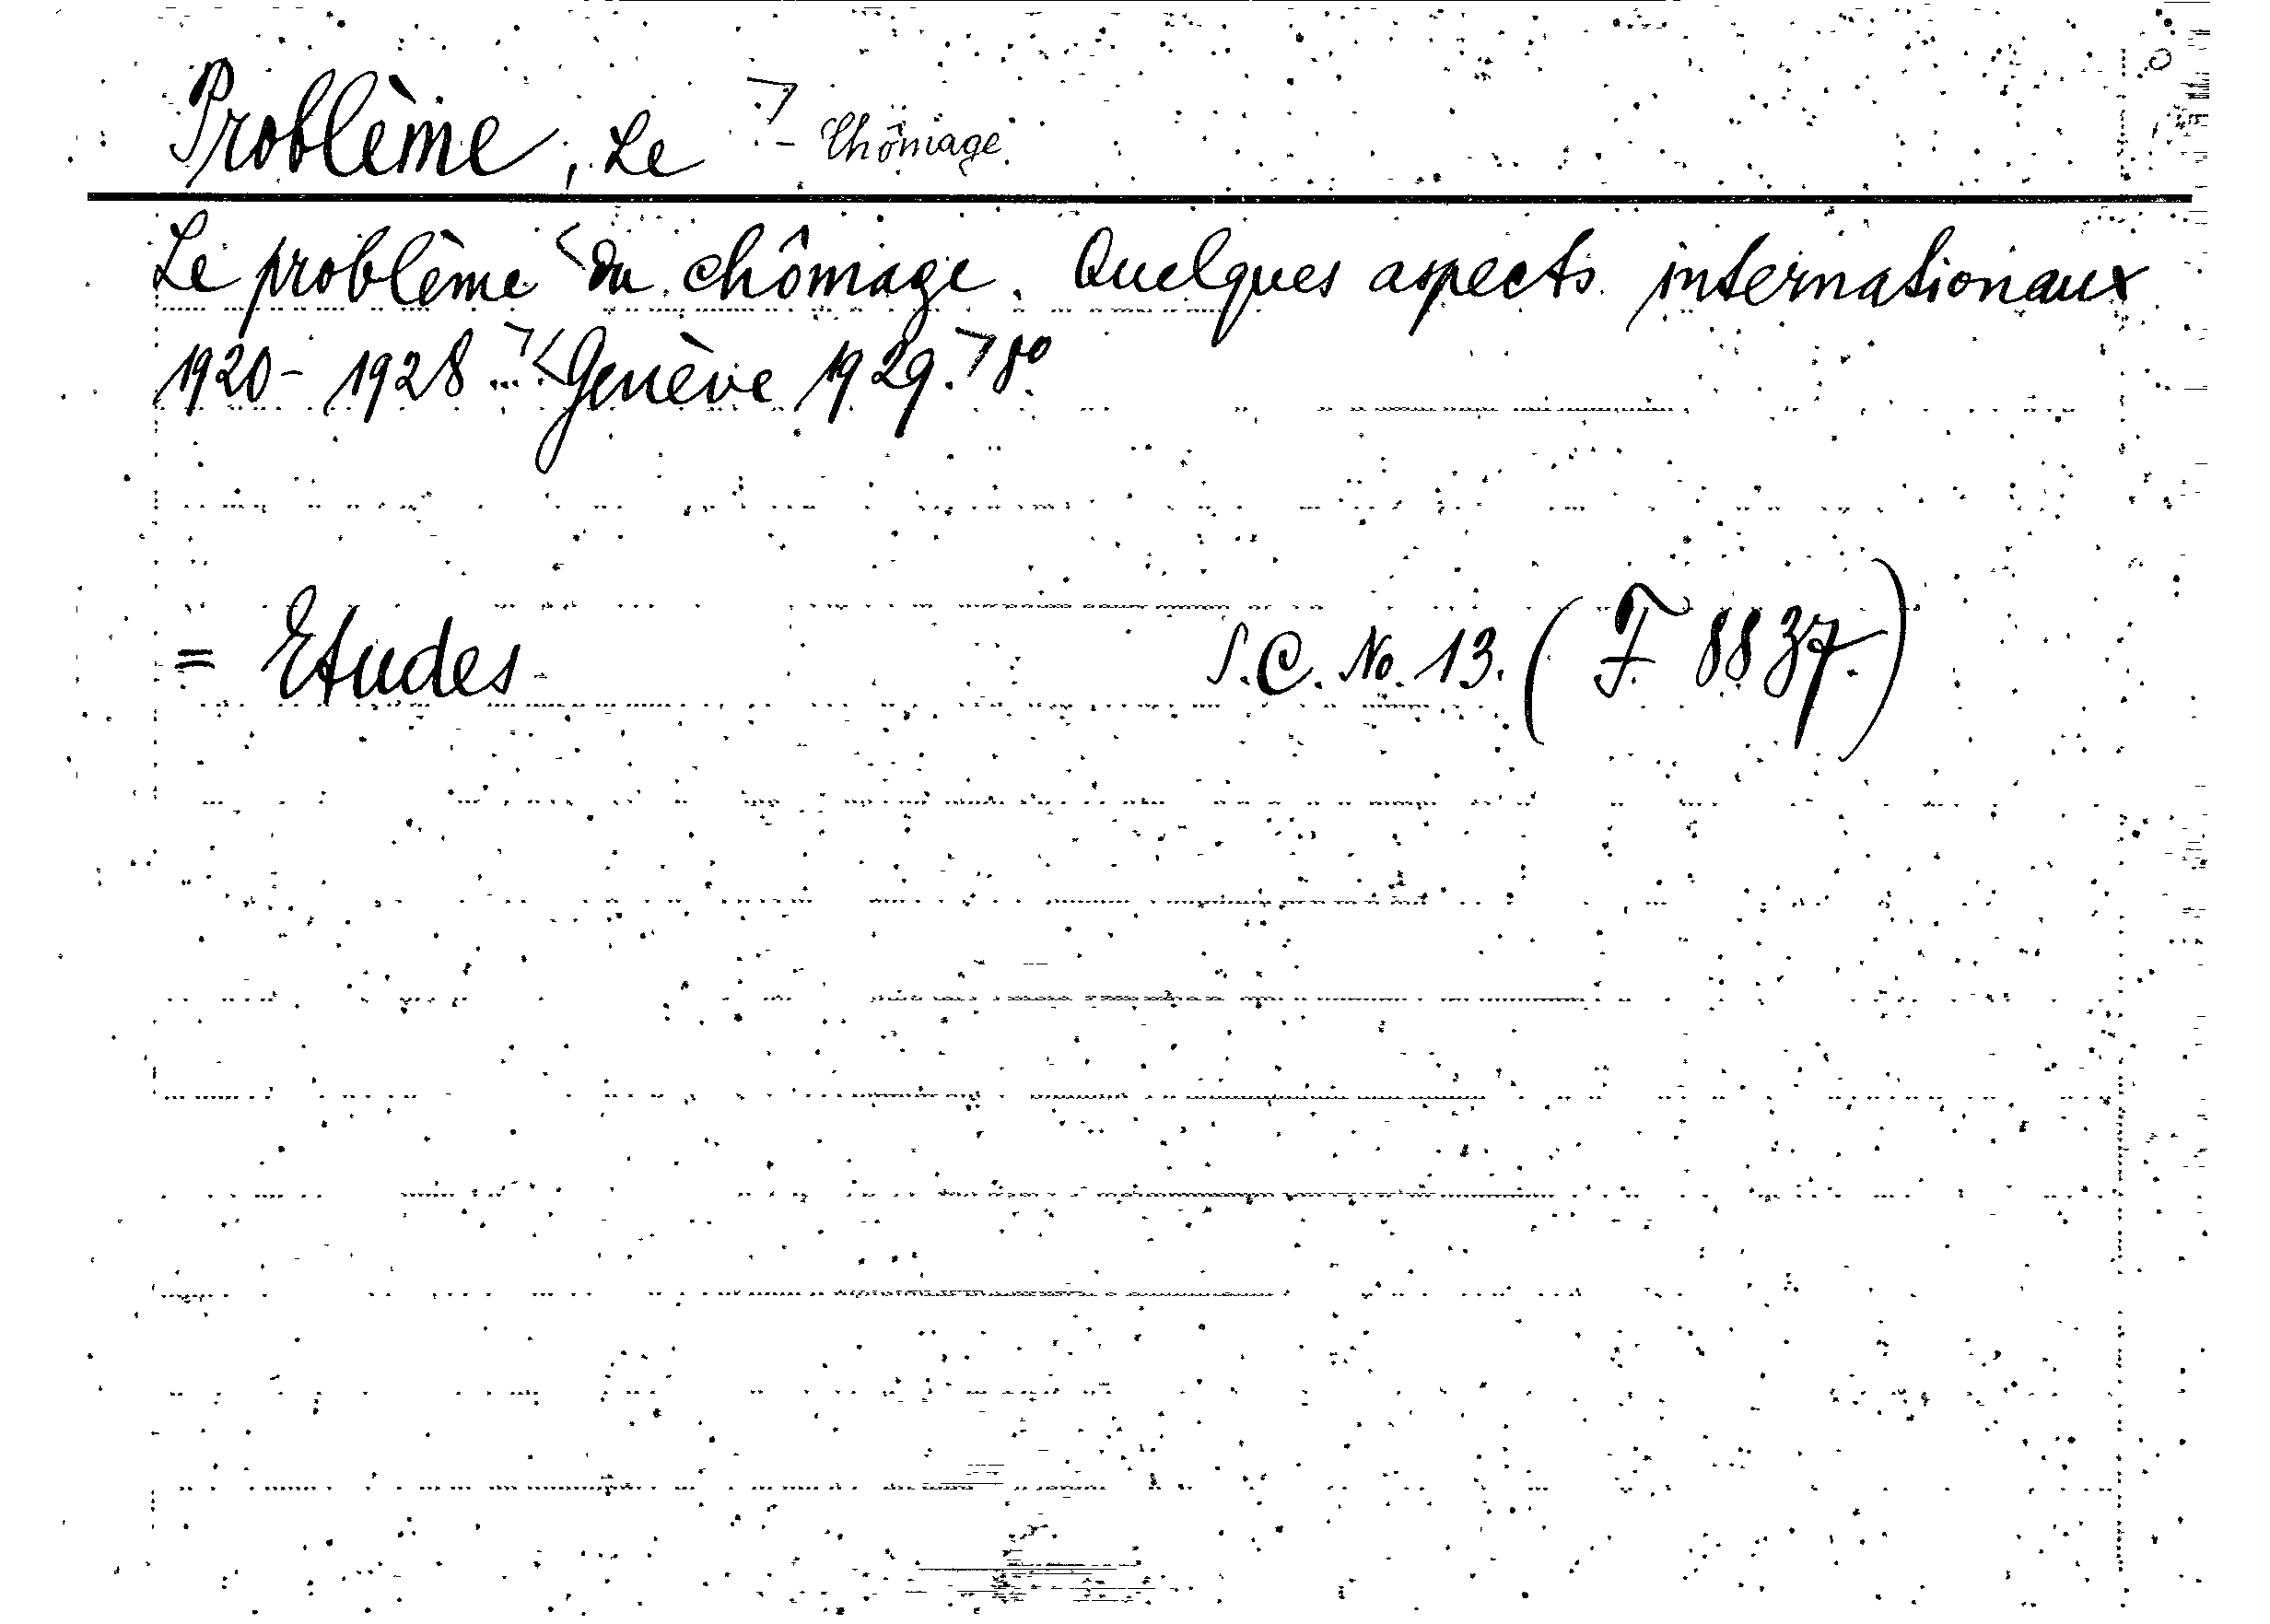 Problème, Le - Chômage
Le problème du chômage. Quelques aspects internationaux
1920-1928... Genève 1929. 8°.
= Etudes S.C. No. 13. (F 8837.)